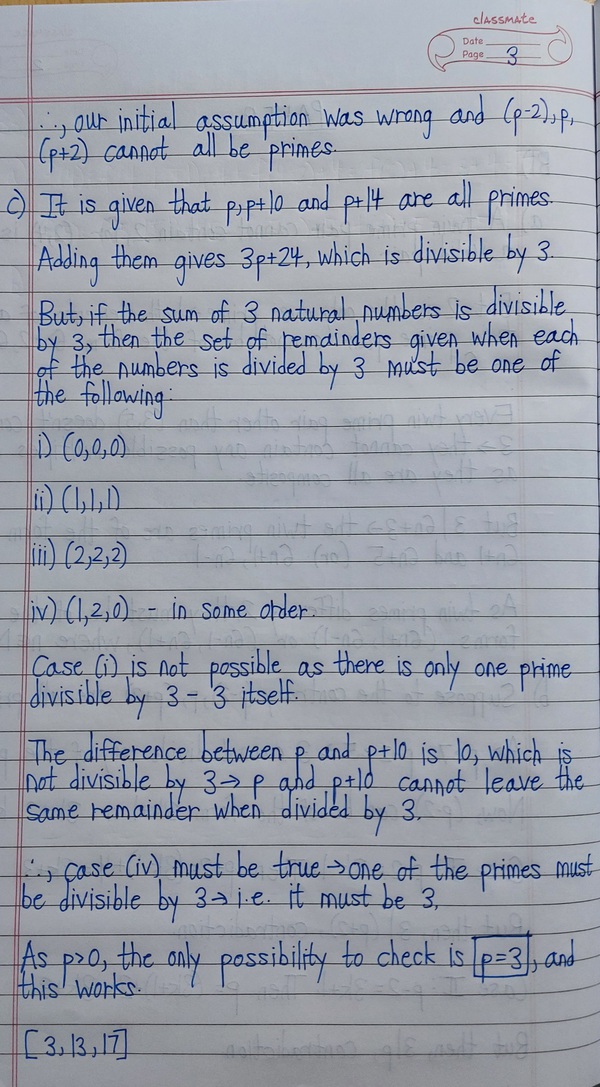 classmate
Date
Page 3
∴, our initial assumption was wrong and (p-2), p,
(p+2) cannot all be primes.
c) It is given that p, p+10 and p+14 are all primes.
Adding them gives 3p+24, which is divisible by 3.
But, if the sum of 3 natural numbers is divisible
by 3, then the set of remainders given when each
of the numbers is divided by 3 must be one of
the following:
i) (0,0,0)
ii) (1,1,1)
iii) (2,2,2)
iv) (1,2,0) - in some order.
Case (i) is not possible as there is only one prime
divisible by 3 - 3 itself.
The difference between p and p+10 is 10, which is
not divisible by 3 → p and p+10 cannot leave the
same remainder when divided by 3.
∴, case (iv) must be true → one of the primes must
be divisible by 3 → i.e. it must be 3.
As p>0, the only possibility to check is p=3, and
this works.
[3,13,17]